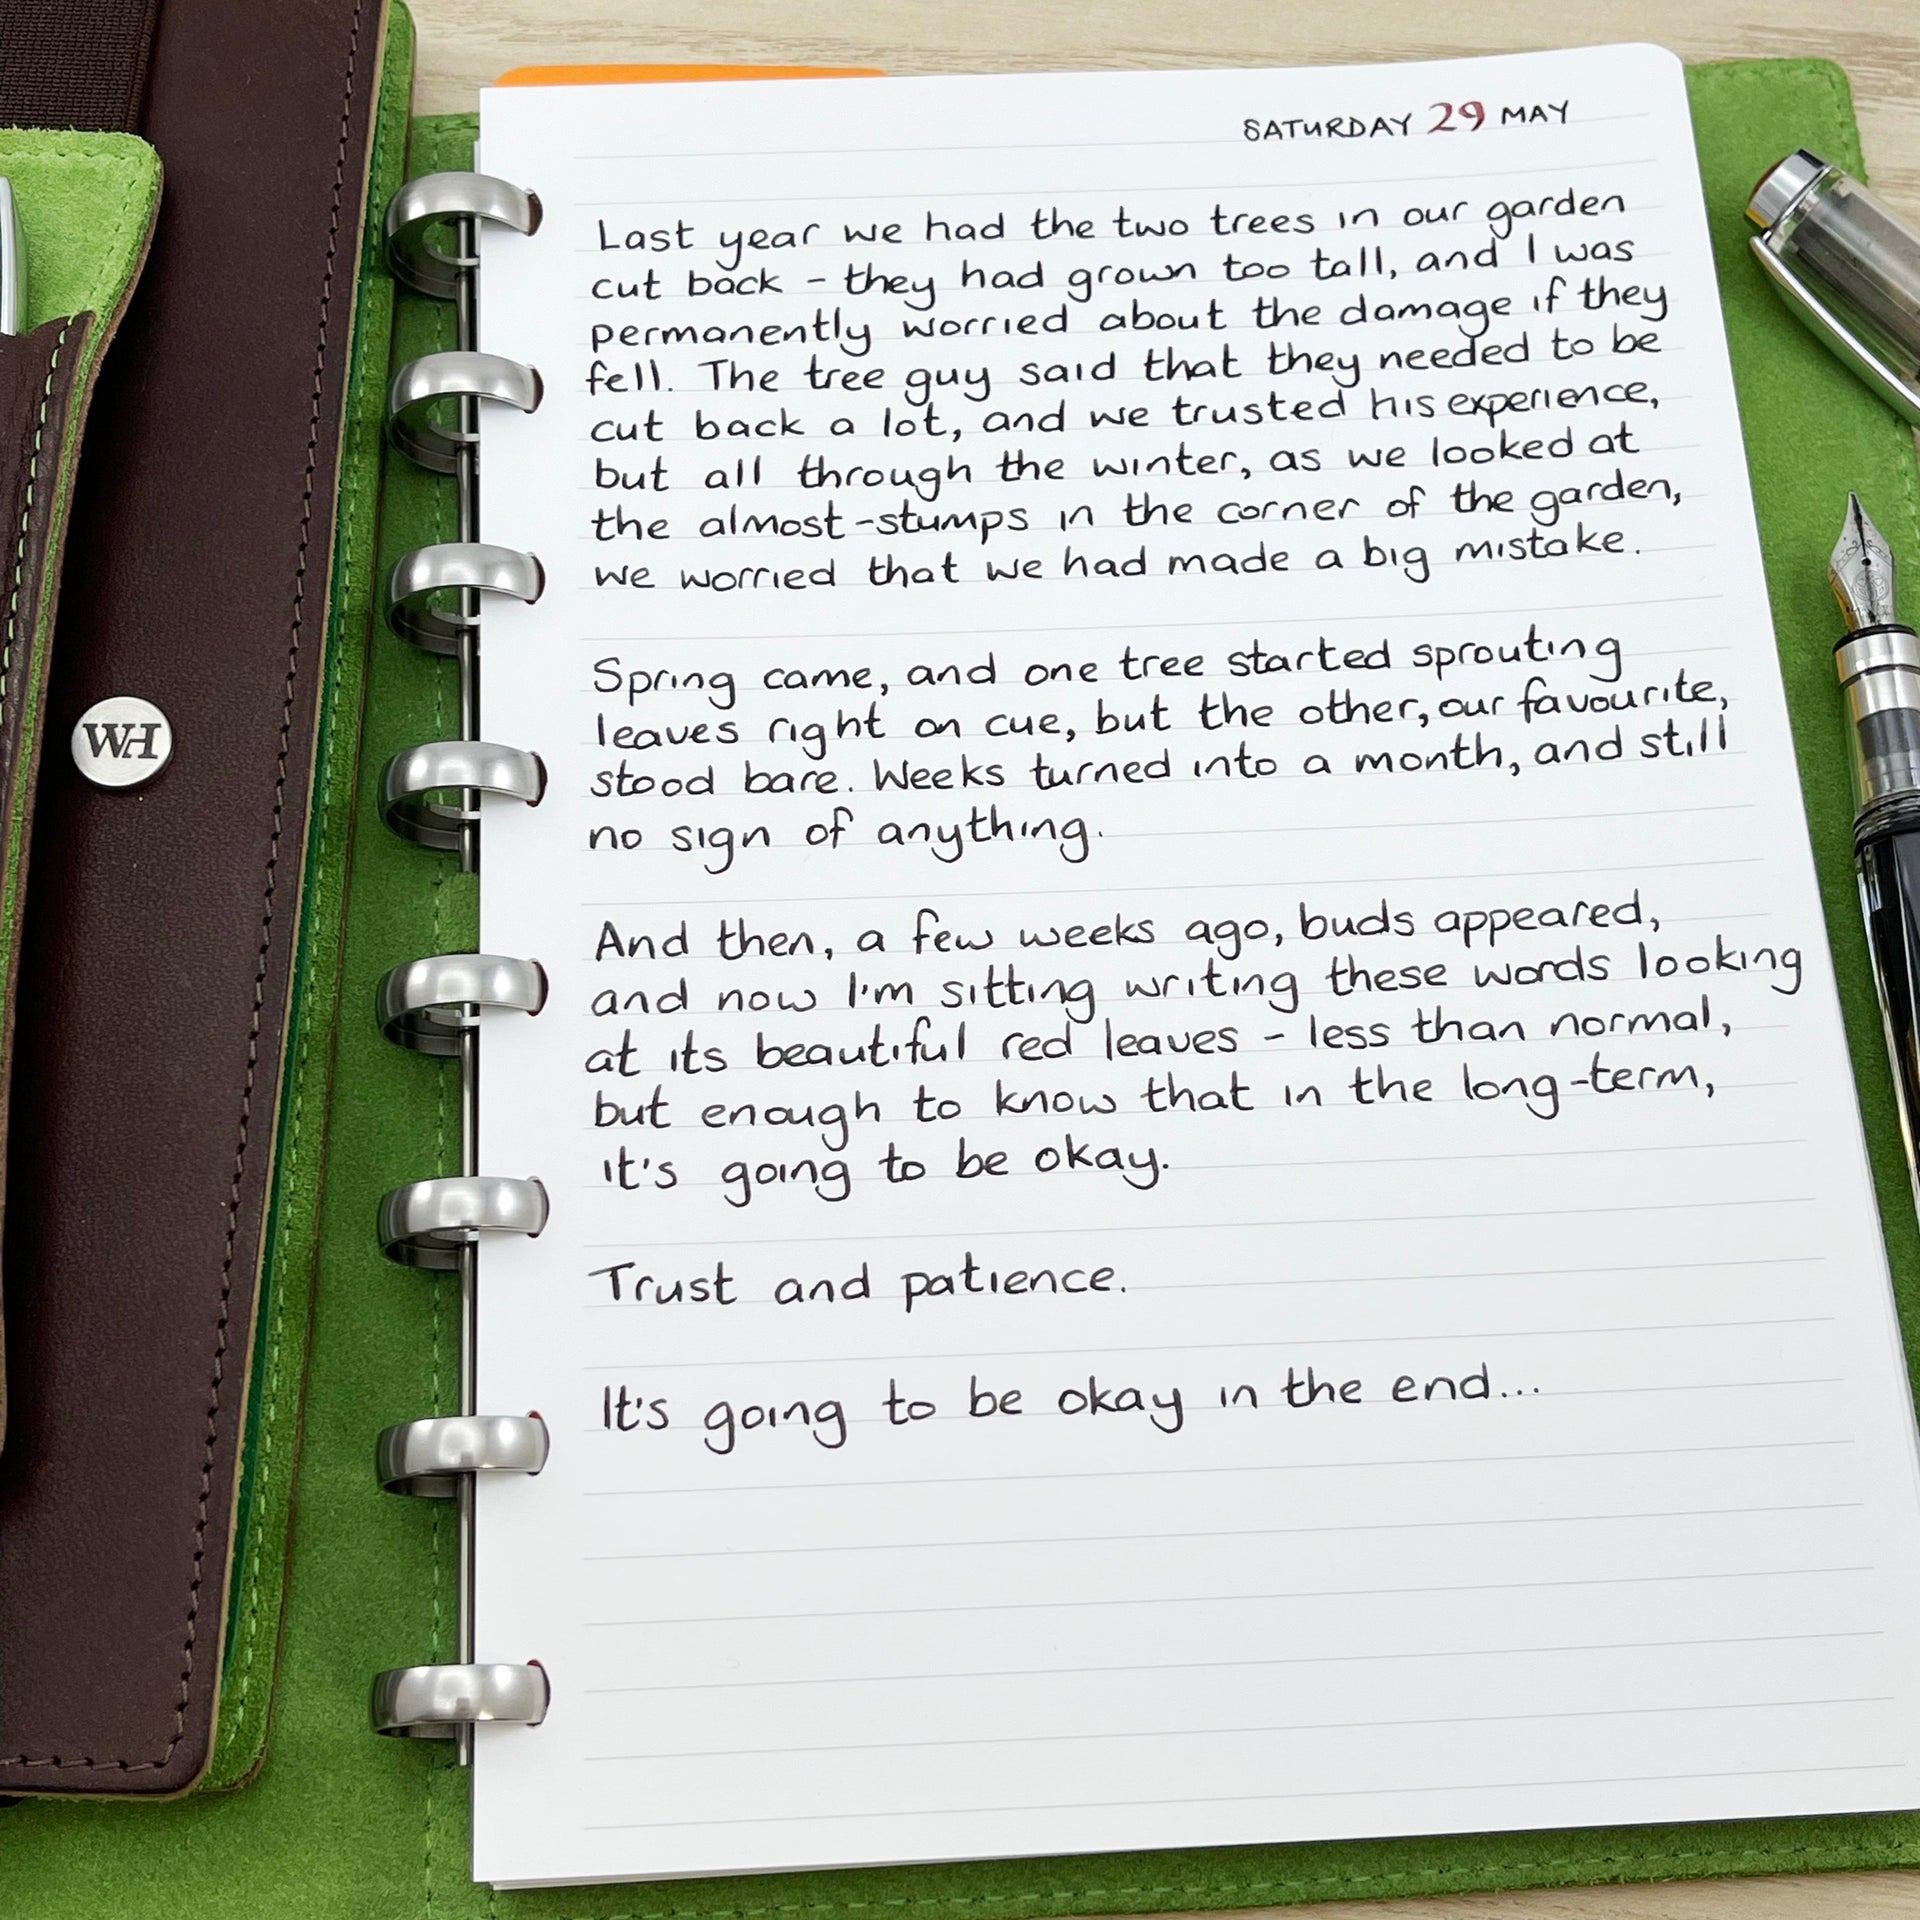 WH
SATURDAY 29 MAY
Last year we had the two trees in our garden
cut back - they had grown too tall, and I was
permanently worried about the damage if they
fell. The tree guy said that they needed to be
cut back a lot, and we trusted his experience,
but all through the winter, as we looked at
the almost-stumps in the corner of the garden,
we worried that we had made a big mistake.
Spring came, and one tree started sprouting
leaves right on cue, but the other, our favourite,
stood bare. Weeks turned into a month, and still
no sign of anything.
And then, a few weeks ago, buds appeared,
and now I'm sitting writing these words looking
at its beautiful red leaves - less than normal,
but enough to know that in the long-term,
it's going to be okay.
Trust and patience.
It's going to be okay in the end...